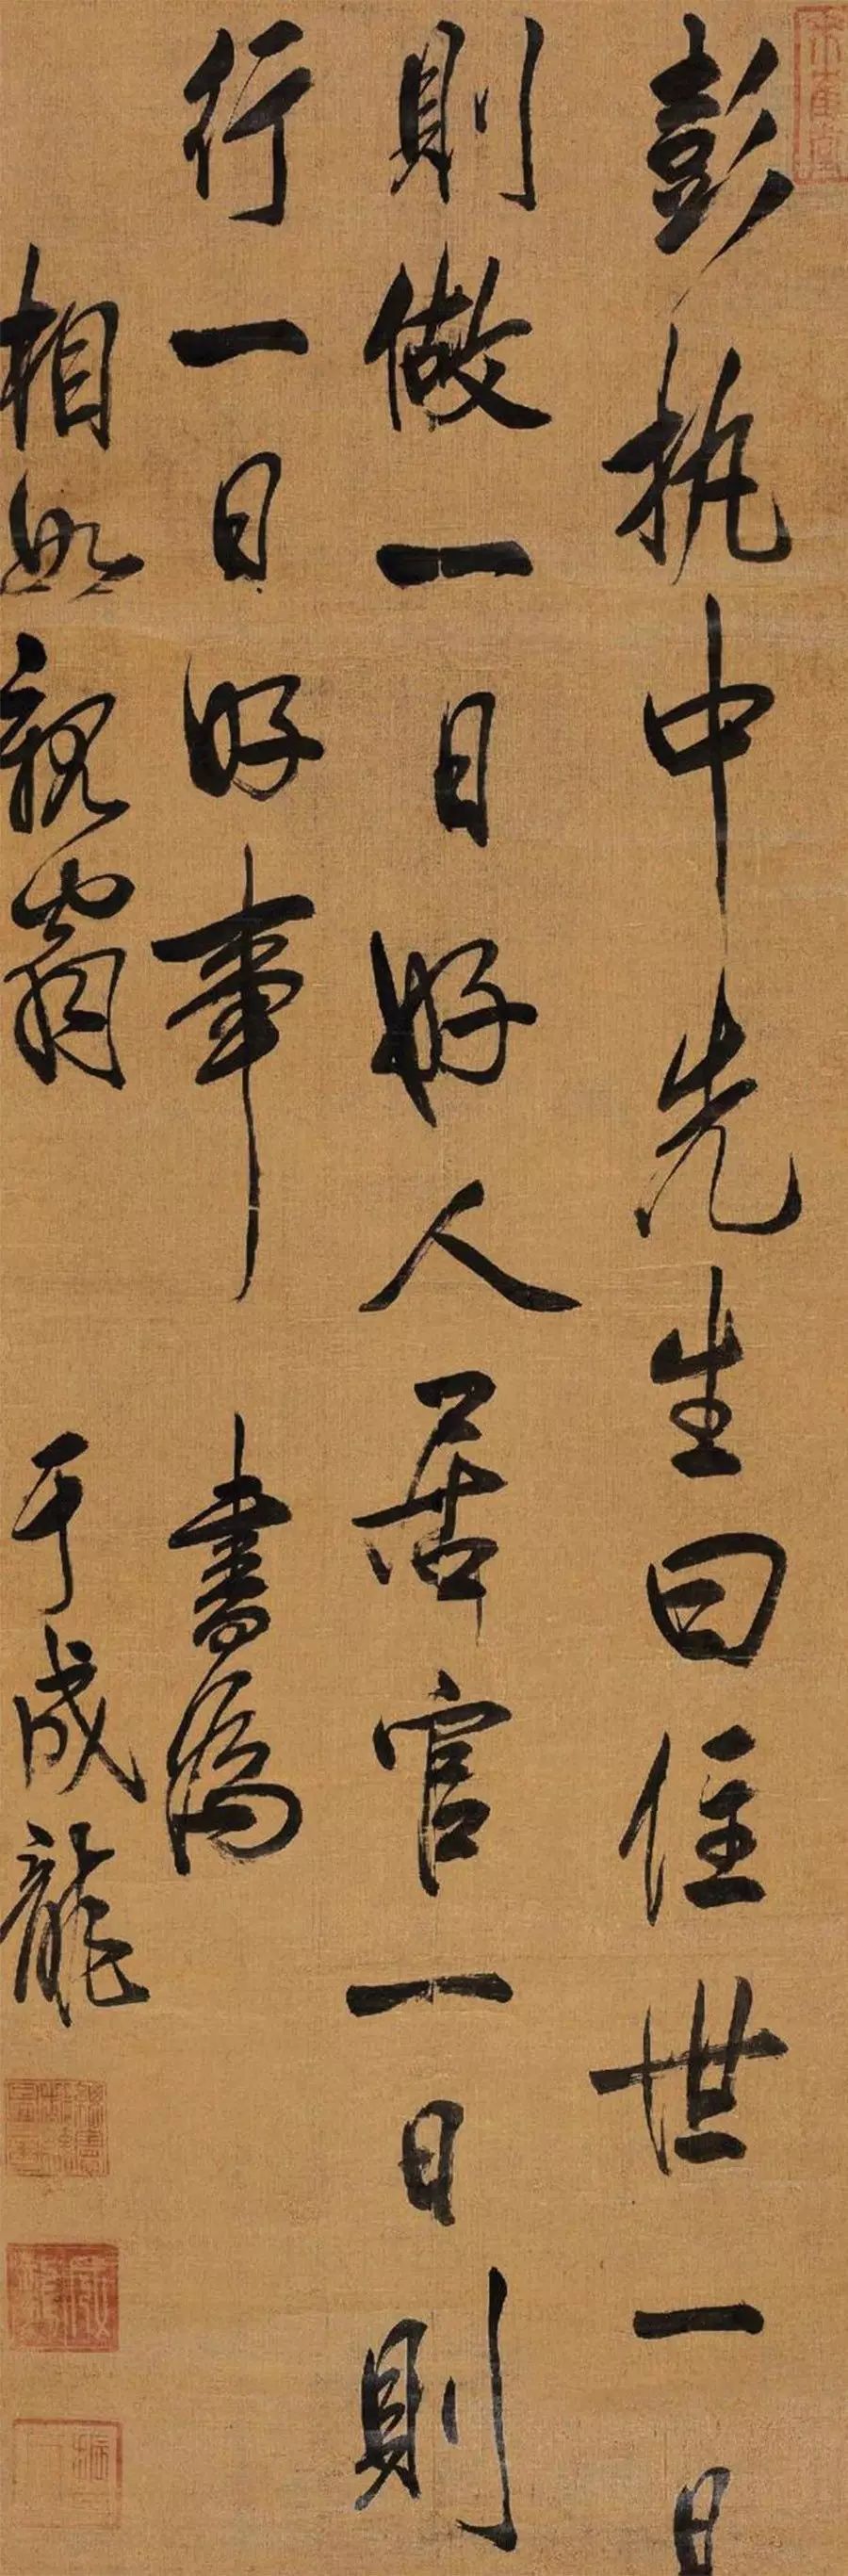 彭執中先生曰住世一日
則做一日好人居官一日則
行一日好事 書為
相如親翁 于成龍